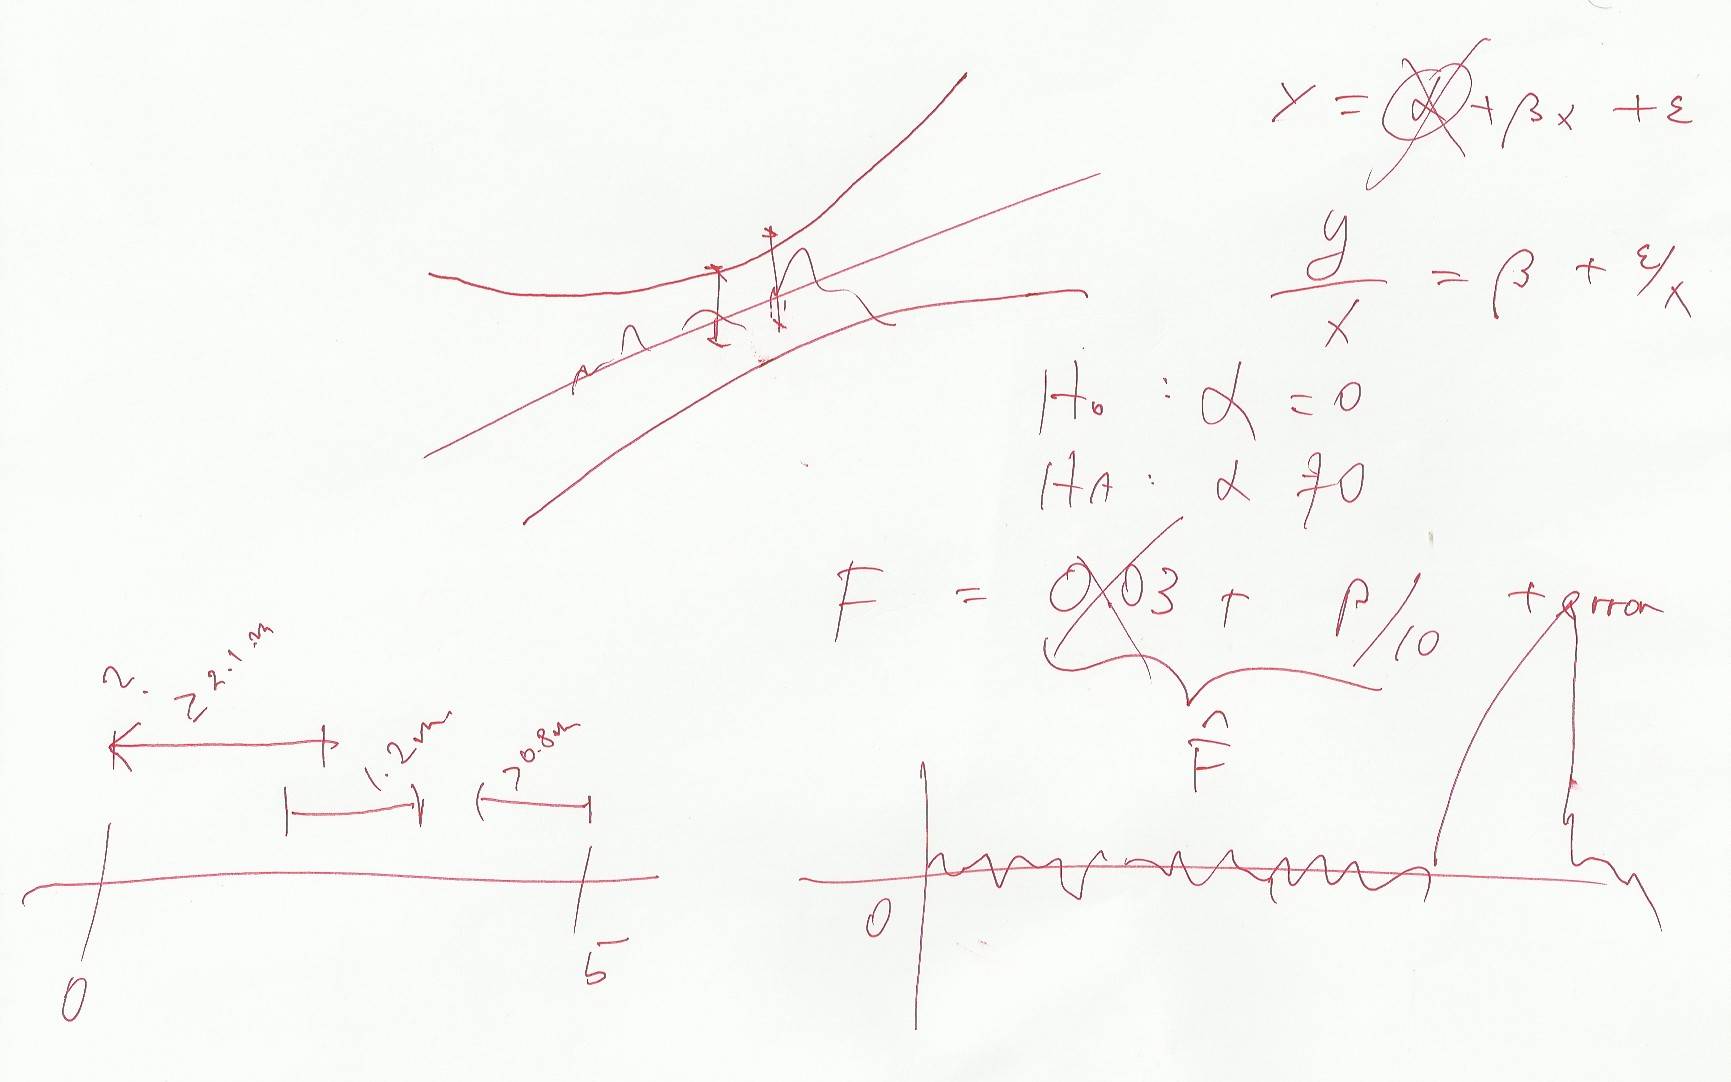 Y = α + βx + ε
y/x = β + ε/x
H₀ : α = 0
H_A : α ≠ 0
F = 0.03 + P/10 + error
F̂
2.1 m
1.2 m
0.8m
0
5
0